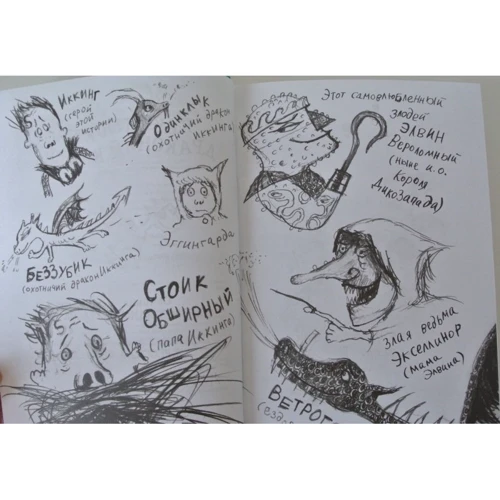 Иккинг
(герой
этой
истории)
Одинклык
(охотничий дракон
Иккинга)
Эггингарда
Беззубик
(охотничий дракон Иккинга)
Стоик
Обширный
(папа Иккинга)
Этот самовлюбленный
злодей
Элвин
Вероломный
(ныне и.о.
Короля
Дикозапада)
Злая ведьма
Экселлинор
(мама
Элвина)